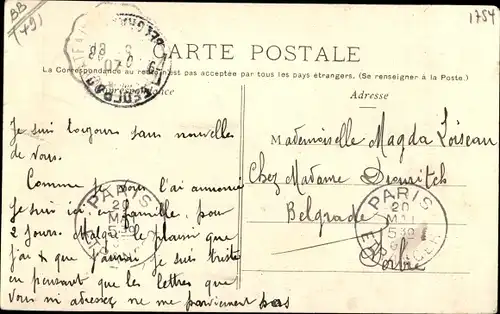 BB
(79)
1754
CARTE POSTALE
La Correspondance au recto n'est pas acceptée par tous les pays étrangers. (Se renseigner à la Poste.)
Correspondance
Adresse
Je suis toujours sans nouvelles
de vous.
Comme je vous l'ai annoncé
je suis ici en famille pour
2 jours. Malgré le plaisir que
j'ai & que j'aurai je suis triste
en pensant que les lettres que
vous m'adressez ne me parviennent pas
Mademoiselle Magda Loiseau
Chez Madame
Belgrade
Serbie
PARIS
20
MAI
5 30
ETRANGER
PARIS
20
MAI
5 30
ETRANGER